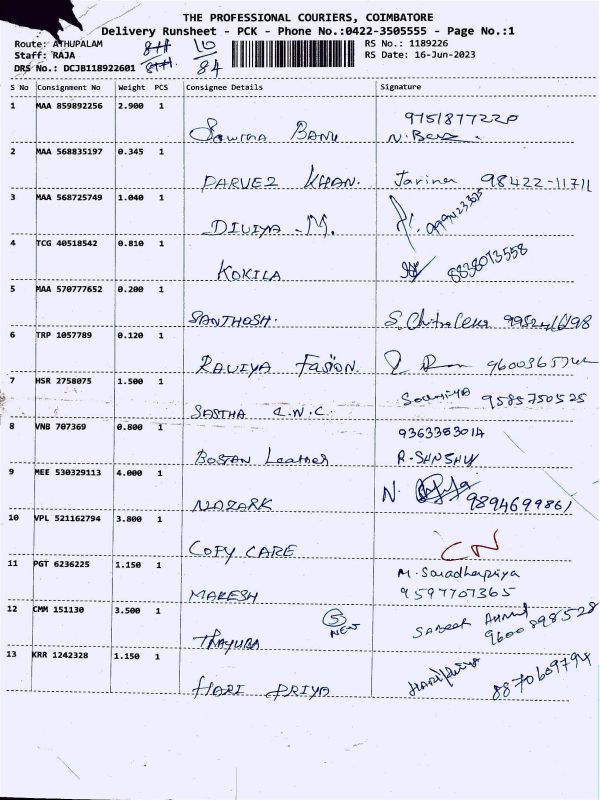 THE PROFESSIONAL COURIERS, COIMBATORE
Delivery Runsheet - PCK - Phone No.:0422-3505555 - Page No.:1
Route: ATHUPALAM
Staff: RAJA
DRS No.: DCJB118922601
10
84
RS No.: 1189226
RS Date: 16-Jun-2023
S No Consignment No Weight PCS Consignee Details Signature
1 MAA 859892256 2.900 1 BANU 9751877220
2 MAA 568835197 0.345 1 PARVEZ KHAN. Jarina 98422-11711
3 MAA 568725749 1.040 1 DIVIYA .M.
4 TCG 40518542 0.810 1 KOKILA 8838073558
5 MAA 570777652 0.200 1 SANTHOSH. S. Chitralekha
6 TRP 1057789 0.120 1 RAVIYA Fasion
7 HSR 2758075 1.500 1 SASTHA C.N.C. Soumiya 9585750525
8 VNB 707369 0.800 1 BOSTAN Leather 9363353014
9 MEE 530329113 4.000 1 NAZARK N. 9894699861
10 VPL 521162794 3.800 1 COPY CARE CN
11 PGT 6236225 1.150 1 MAKESH M. Saradhapriya
9597707365
12 CMM 151130 3.500 1 THAYUBA 5 NEW 9600898528
13 KRR 1242328 1.150 1 HARI PRIYA Haripriya 8870609794